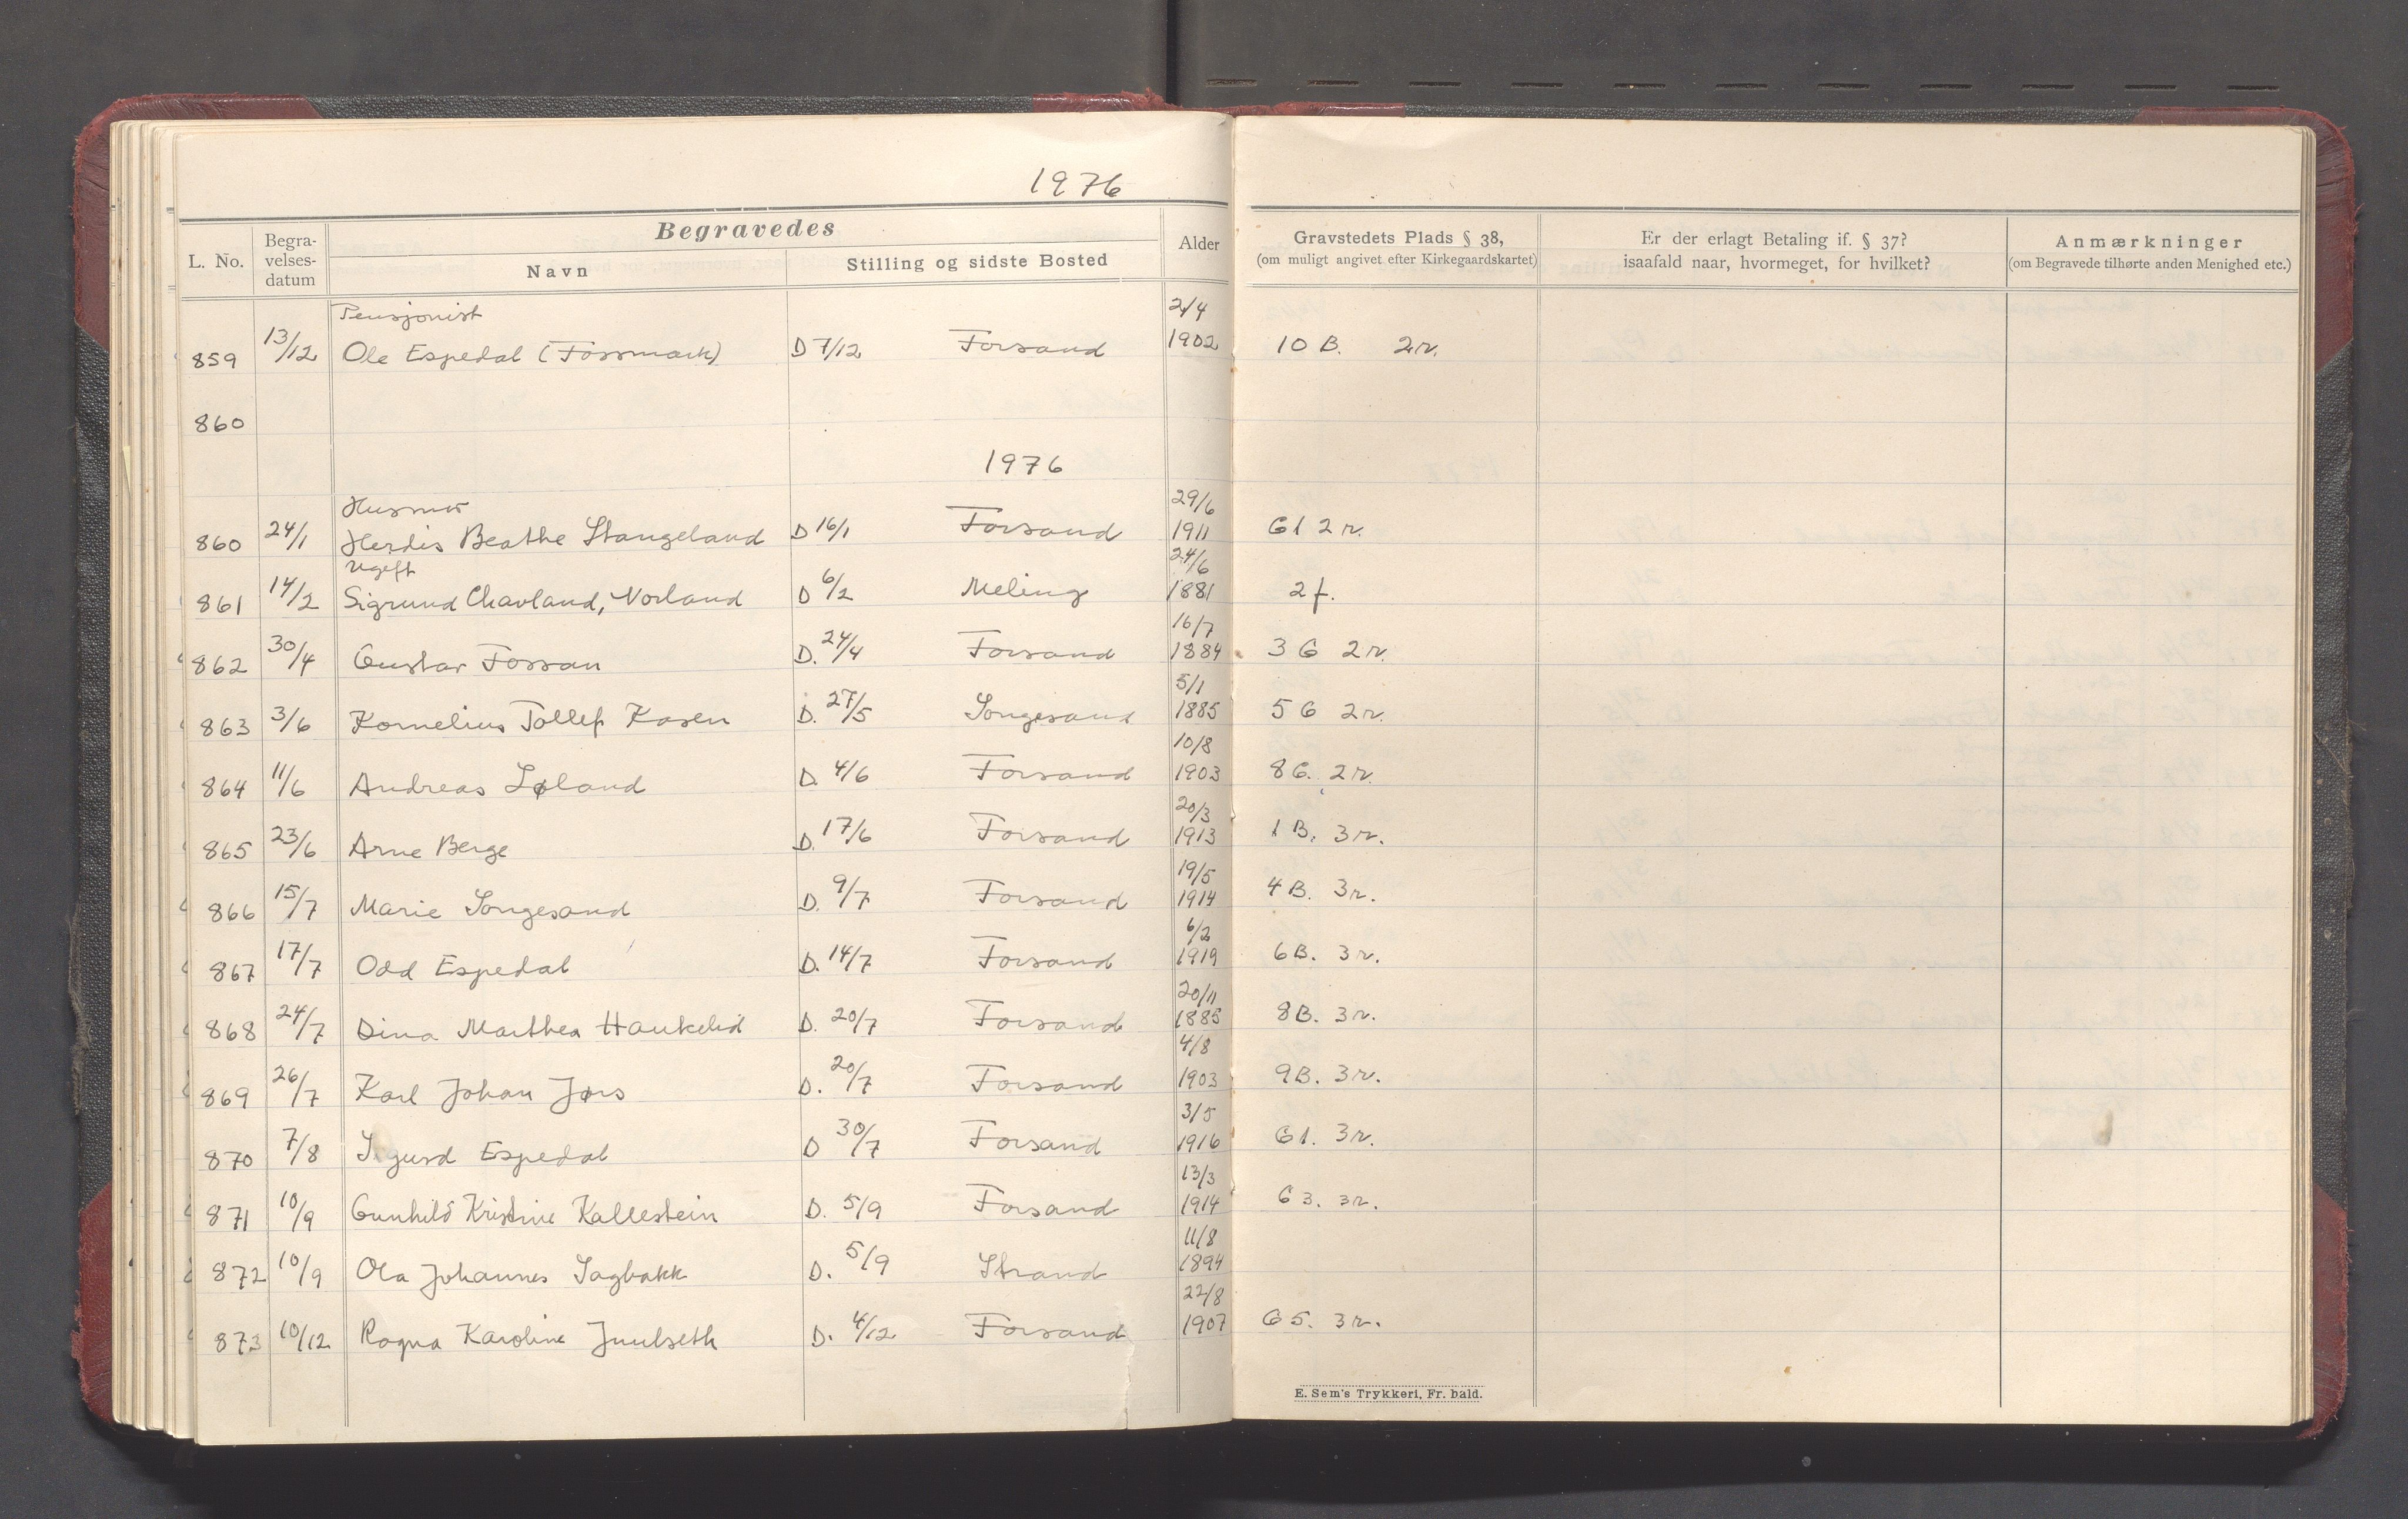 1976
Begravedes
L. No. Begravelsesdatum Navn Stilling og sidste Bosted Alder Gravstedets Plads § 38, (om muligt angivet efter Kirkegaardskartet) Er der erlagt Betaling if. § 37? isaafald naar, hvormeget, for hvilket? Anmærkninger (om Begravede tilhørte anden Menighed etc.)
Pensjonist 2/4
859 13/12 Ole Espedal (Fossmark) D 7/12 Forsand 1902 10 B. 2r.
860
1976
Husmor 29/6
860 24/1 Herdis Beathe Stangeland D 16/1 Forsand 1911 G1 2r.
Ugift 24/6
861 14/2 Sigrund Chavland, Norland D 6/2 Meling 1881 2 f.
16/7
862 30/4 Gustav Fossan D. 24/4 Forsand 1884 3 G 2r.
5/1
863 3/6 Kornelius Tollef Kasen D. 27/5 Songesand 1885 5 G 2r.
10/8
864 11/6 Andreas Løland D. 4/6 Forsand 1903 8G. 2r.
20/3
865 23/6 Arne Berge D. 17/6 Forsand 1913 1 B. 3r.
19/5
866 15/7 Marie Songesand D. 9/7 Forsand 1914 4 B. 3r.
6/2
867 17/7 Odd Espedal D. 14/7 Forsand 1919 6B. 3r.
20/11
868 24/7 Dina Marthea Haukelid D. 20/7 Forsand 1885 8B. 3r.
4/8
869 26/7 Karl Johan Jørs D. 20/7 Forsand 1903 9B. 3r.
3/5
870 7/8 Sigurd Espedal D 30/7 Forsand 1916 G1. 3r.
13/3
871 10/9 Gunhild Kristine Kallestein D. 5/9 Forsand 1914 G3. 3r.
11/8
872 10/9 Ola Johannes Sagbakk D. 5/9 Strand 1894
22/8
873 10/12 Ragna Karoline Juulseth D. 4/12 Forsand 1907 G5. 3r.
E. Sem's Trykkeri, Fr. hald.